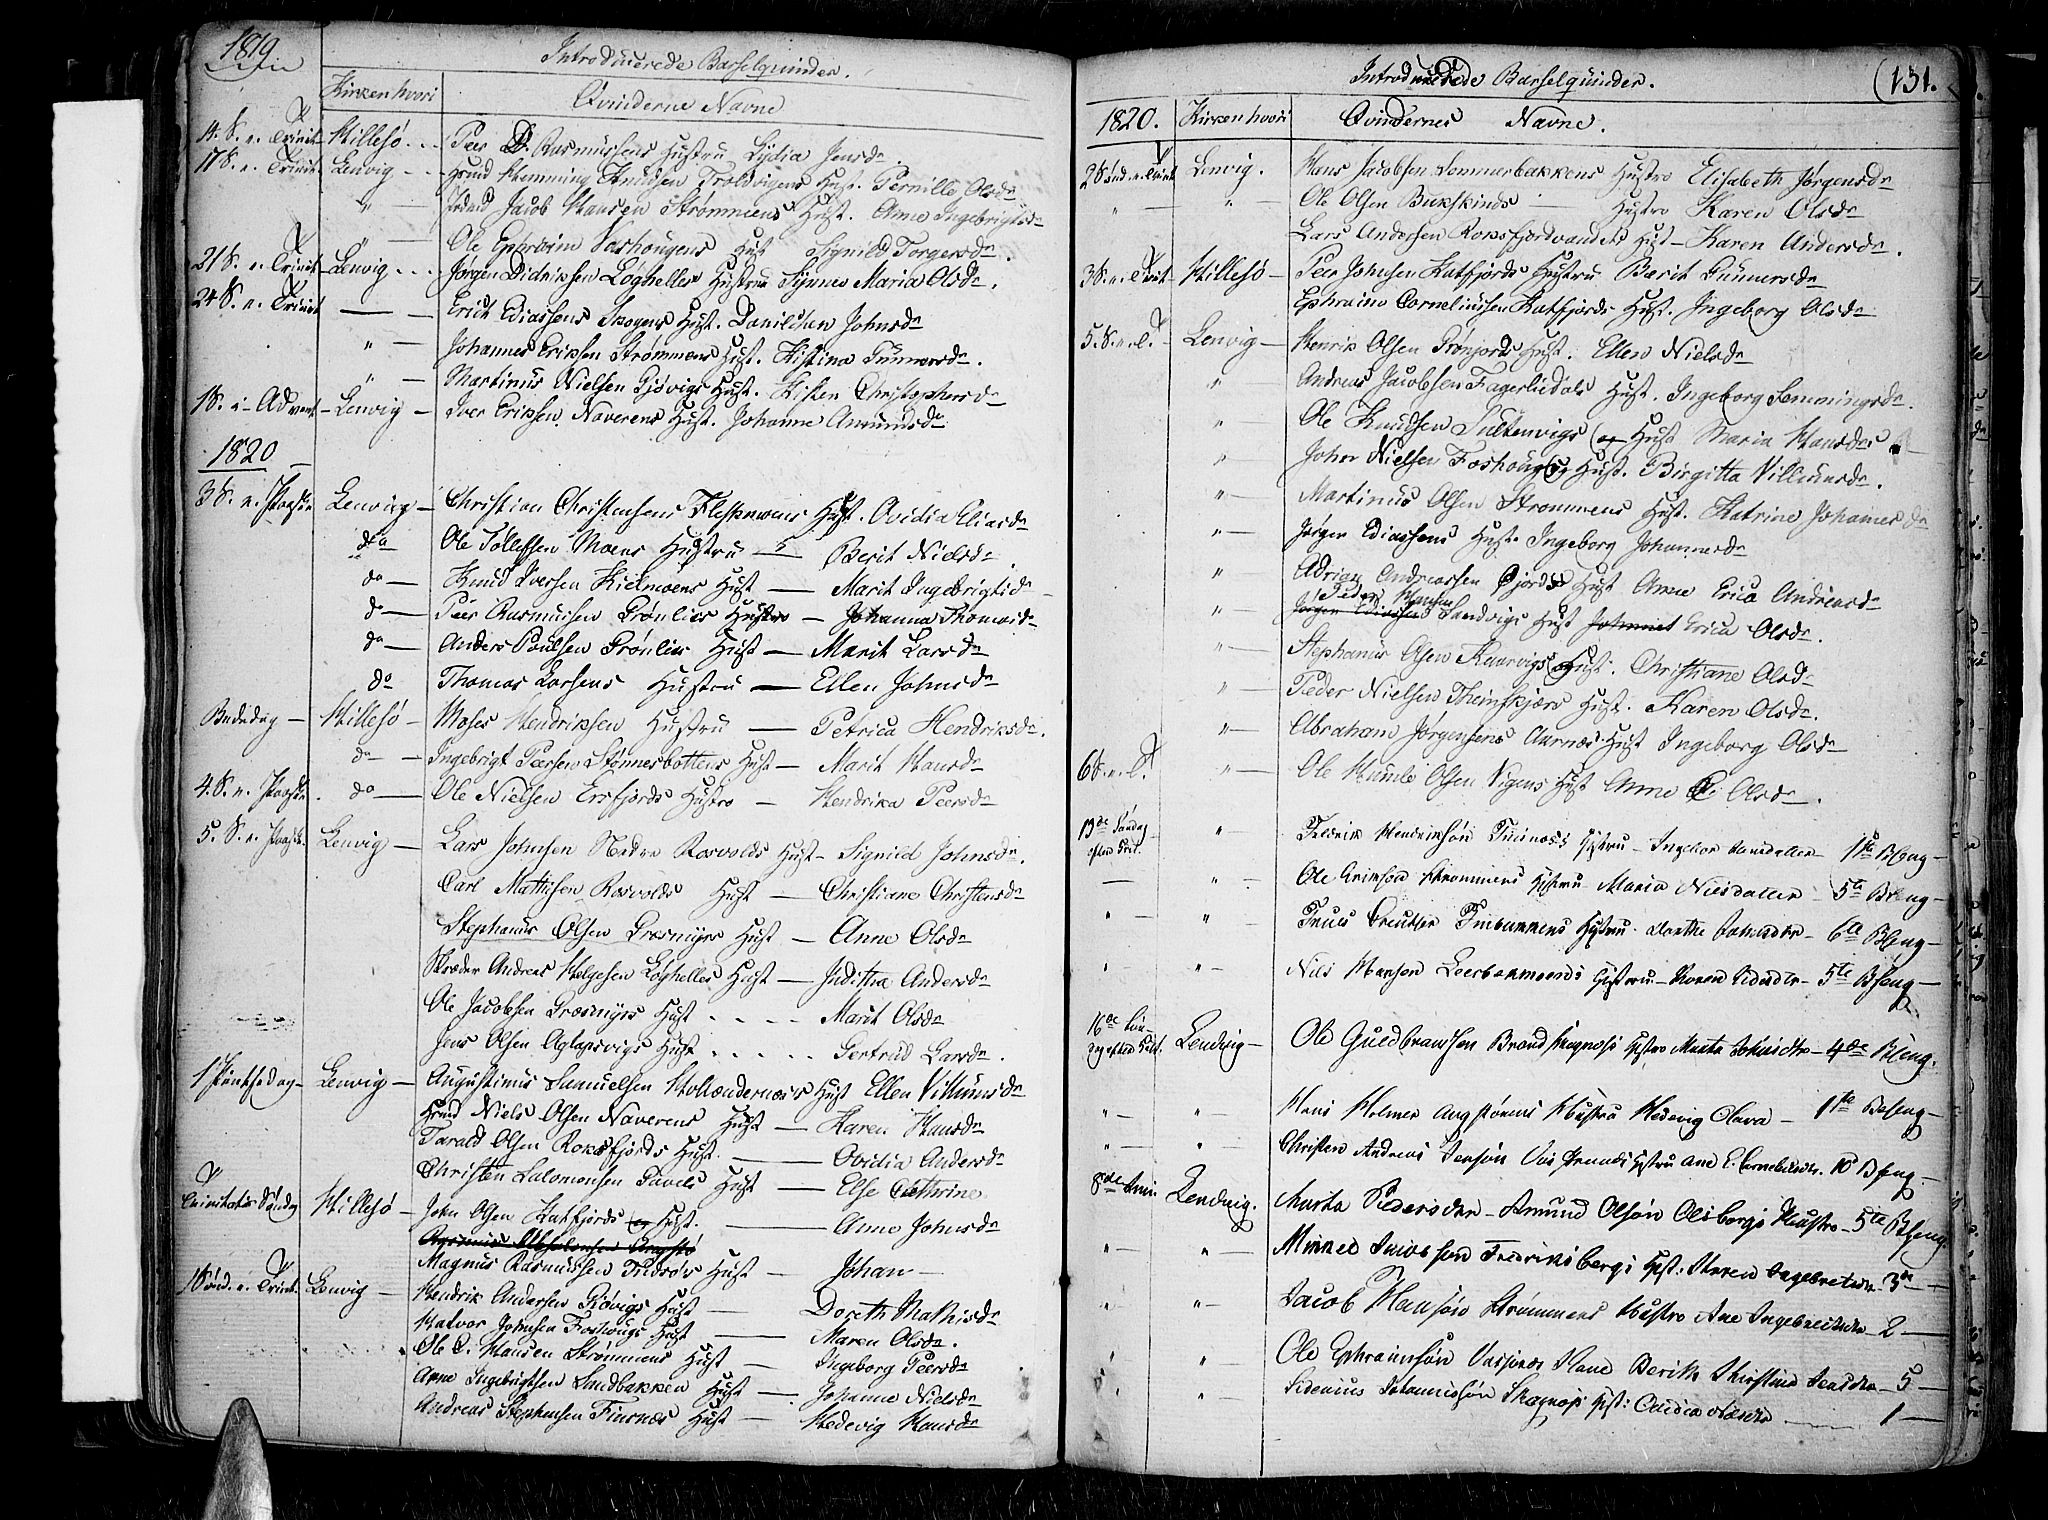 1819
Introducerede Barselquinder.
Kirken hvori
Qvinderne Navne
14. S. e. Trinit Hillesø Peer D. Rasmussens Hustru Lydia Jensdr.
17 S. e. Trinit Lenvig Hemming Knudsen Troldvigens Hust. Pernille Olsdr
" Jacob Hansen Strømmens Hust. Anne Ingebrigtsdr
" Ole Ephraim Vashougens Hust Signild Torgersdr.
21 S. e. Trinit Lenvig Jørgen Didriksen Løghelles Hustru Synnes Maria Olsdr.
24 S. e. Trinit Erich Ediassens Skogens Hust. Danildsan Johnsdr
" Johannes Eriksen Strømmens Hust. Kistina Gunnersdr.
" Martinus Nielsen Gjøvigs Hust. Kisten Christophersdr
1 S. i Advent Lenvig Iver Eriksen Naverens Hust. Johanne Amundsdr
1820
3 S. e. Paaske Lenvig Christian Christensens Hust. Ovidia Eliasdr
do Ole Tollefsen Moens Hustru Berit Nielsdr.
do Knud Iversen Kielmoens Hust Marit Ingebrigtsdr
do Peer Rasmussen Grønlies Hustro Johanna Thomasdr
do Anders Poulsen Grønlies Hust Marit Larsdr
do Thomas Larsens Hustru Ellen Johnsdr
Bededag Hillesø Moses Hendriksen Hustru Petrica Hendriksdr.
do Ingebrigt Peersen Stønnesbottens Hust Marit Hansdr
4. S. e. Paaske do Ole Nielsen Ersfjords Hustro Hendrika Peersdr
5. S. e. Paaske Lenvig Lars Johnsen Nedre Rosvolds Hust Signild Johnsdr.
Carl Mathisen Rosvolds Hust Christiane Christensdr
Stephanus Olsen Græsmyrs Hust Anne Olsdr
Skræder Andreas Helgesen Løghelles Hust Inditha Andersdr
Ole Jacobsen Græsmyrs Hust Marit Olsdr
Jens Olsen Aglapsvigs Hust Gertrud Larsdr.
1 Pintsedag Lenvig Augustinus Samuelsen Hollændernæss Hust Ellen Villumsdr
Niels Olsen Naverens Hust Karen Hansdr
Tarald Olsen Roksfjords Hust. Ovidia Andersdr
Christen Salomonsen Gavels Hust Else Cathrine
Trinitatis Søndag Hillesø John Olsen Katfjords Hust. Anne Johnsdr
Magnus Rasmussen Hust Johan
1 Sønd. e. Trinit. Lenvig Hendrik Andersen Giøvigs Hust Doreth Mathisdr
Halvor Johnsen Foshougs Hust Maren Olsdr.
Ole C. Hansen Strømmens Hust Ingeborg Peersdr
Arne Ingebrigtsen Sandbakken Hust Johanne Nielsdr
Andreas Stephensen Finnæs Hust Hedevig Hansdr
Introducerede Barselquinder.
(131.
1820. Kirken hvori Qvindernes Navne.
2 Sønd. e. Trinit Lenvig. Hans Jacobsen Sommerbakkens Hustro Elisabeth Jørgensdr
" " Ole Olsen Bukskinds Hustro Karen Olsdr
Lars Andersen Roksfjordvandets Hust Karen Andersdr.
3 S. e. Trit Hillesø Peer Johnsen Katfjords Hustru Berit Gunnersdr
Ephraim Corneliussen Katfjords Hust. Ingeborg Olsdr
5. S. e. T. Lenvig Henrik Olsen Grønjords Hust. Ellen Nielsdr
" Andreas Jacobsen Fagerlidals Hust. Ingeborg Hemmingsdr.
" Ole Knudsen Sultenvigs Hust Maria Hansdr
" John Nielsen Foshoug Hust. Birgitta Villumsdr.
" Martinus Olsen Strømmens Hust. Katrine Johannesdr
" Jørgen Ediassens Hust. Ingeborg Johannesdr
" Adrian Andreassen Gjords Hust Anne Erica Andreasdr
Peder Hansen
" Jørgen Ediassen Sandvigs Hust Erica Olsdr.
" Stephanus Olsen Kaarvigs Hust. Christiane Olsdr
" Peder Nielsen Hust. Karen Olsdr.
" Abraham Jørgensens Aarnæs Hust Ingeborg Olsdr
6 S. e. T. " Ole Humle Olsen Vigens Hust Anne Olsdr.
13de Søndag efter Trit. " Fredrik Hendriksøn Hustru 1ste Bseng
" Ole Erikson Strømmens Hustru Maria Nilsdatter 5te Bseng
" " Hustru Dorthe 6te Bseng
" " Nils Hanson Hustru Karen 5te Bseng
16de Søndag efter Trit. Lendvig Ole Guldbransen Brandskognes Hustro Marta 4de Bseng.
" " Hans Holmer Angstøuens Hustru Hedevig Olava 1ste Bseng
" " Christen Andreas Jensøn Hustru Ane E. Corneliusdr. 10 Bseng
8de Lendvig. Marta Pedersdtr Amund Olsøn Olsborgs Hustro 5te Bseng.
" " Minnee Jacobson Fredriksbergs Hust: Karen Ingebretsdr 3de
" " Jacob Hansøn Strømmens Hustro Ane Ingebretsdr 2
" " Ole Ephraimsøn Kone Berith Kirstina 5
" " Sidenius Johannissøn Skognes Hust: 1